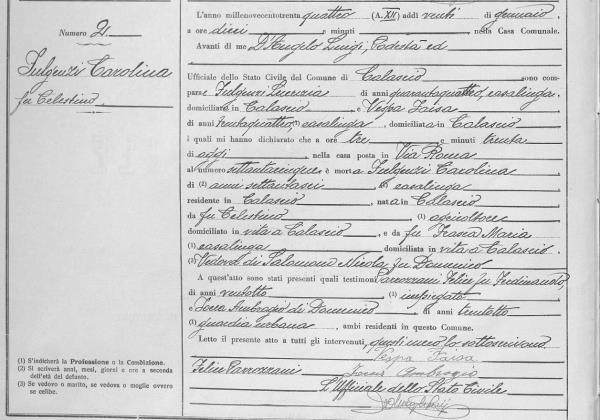 Numero 2.
Fulgenzi Carolina
fu Celestino
L'anno millenovecentotrenta quattro (A. XII) addì venti di gennaio
a ore dieci e minuti, nella Casa Comunale.
Avanti di me D'Angelo Luigi, Podestà ed
Ufficiale dello Stato Civile del Comune di Calascio sono com-
pare Fulgenzi Lucrezia di anni quarantaquattro, casalinga
domiciliata in Calascio e Vespa Faisa
di anni trentaquattro, (1) casalinga, domiciliata in Calascio
i quali mi hanno dichiarato che a ore tre e minuti trenta
di oggi, nella casa posta in Via Roma
al numero settantacinque è morta Fulgenzi Carolina
di (2) anni settantasei (1) casalinga
residente in Calascio, nata in Calascio
da fu Celestino, (1) agricoltore
domiciliato in vita a Calascio, e da fu Maria
(1) casalinga domiciliata in vita a Calascio.
(3) Vedova di Salomone Nicola fu Domenico
A quest'atto sono stati presenti quali testimoni Parrozzani Felice fu Ferdinando,
di anni ventotto (1) impiegato
e Ambrogio di Domenico di anni trentotto
(1) guardia urbana, ambi residenti in questo Comune.
Letto il presente atto a tutti gli intervenuti, questi meco lo sottoscrivono
Vespa Faisa
Felice Parrozzani Ambrogio
L'Ufficiale dello Stato Civile
(1) S'indicherà la Professione o la Condizione.
(2) Si scriverà anni, mesi, giorni e ore a seconda
dell'età del defunto.
(3) Se vedovo o marito, se vedova o moglie ovvero
se celibe.